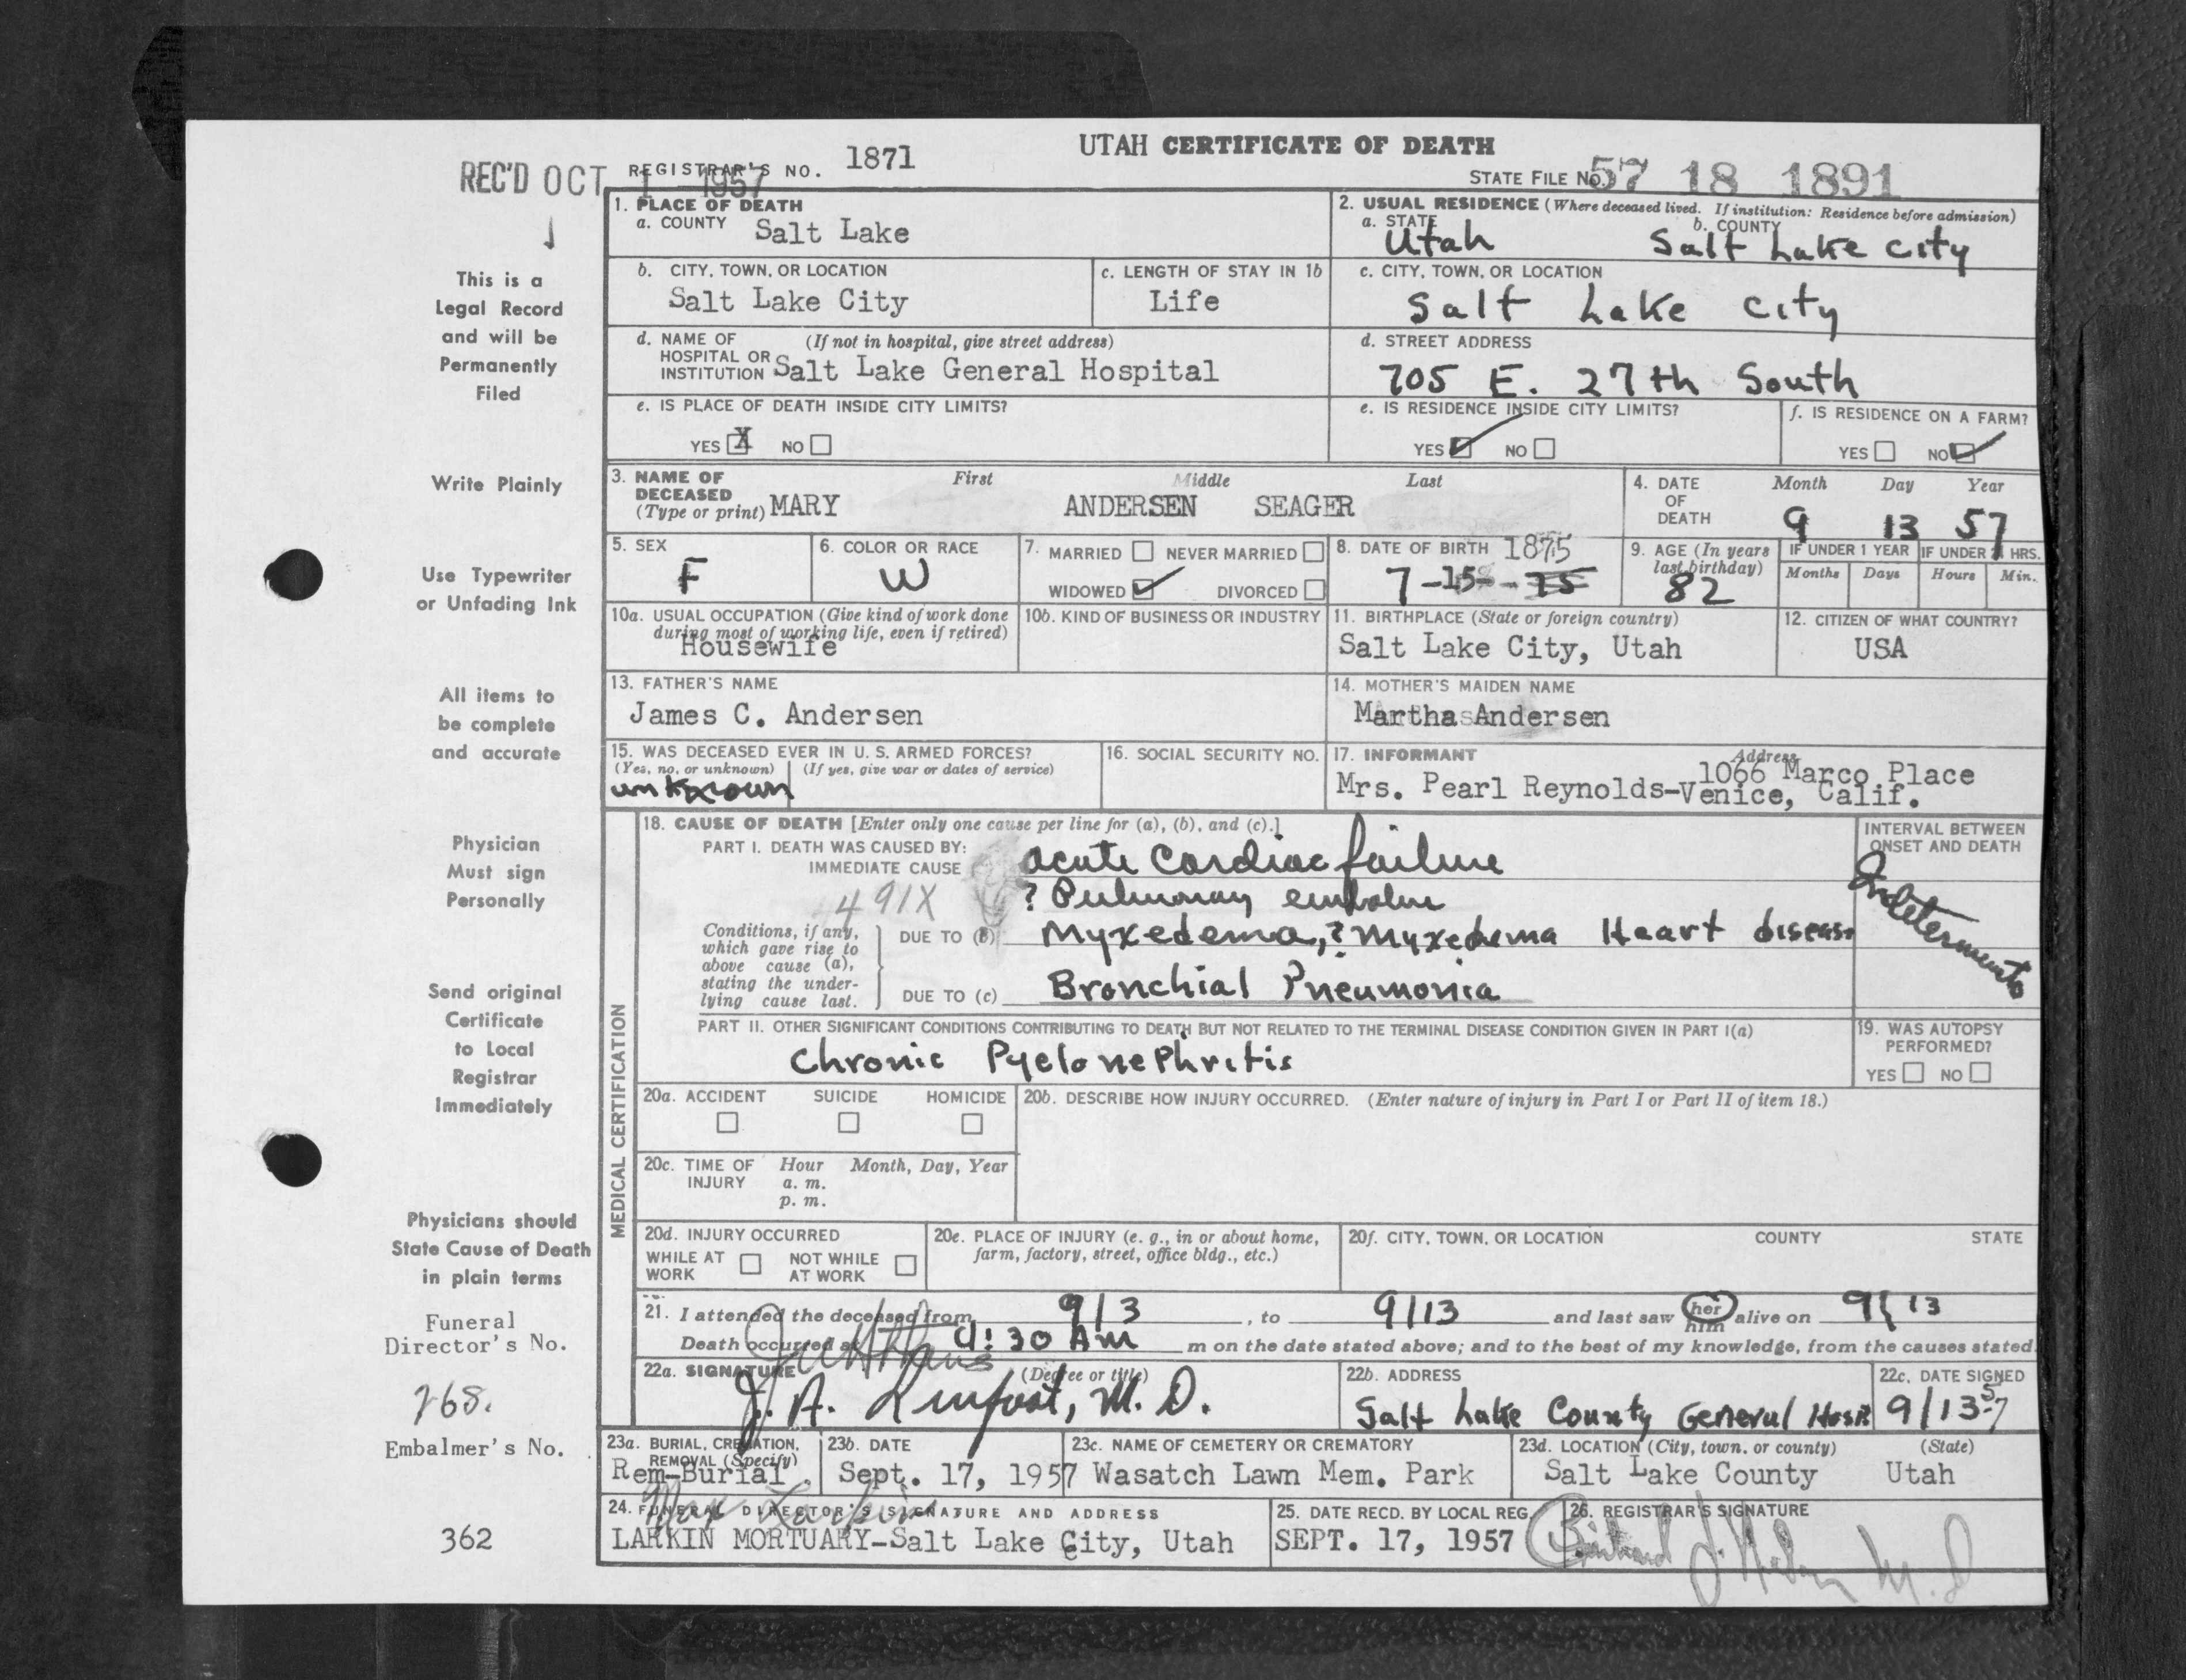 UTAH CERTIFICATE OF DEATH
REC'D OCT 1 1957
REGISTRAR'S NO. 1871
STATE FILE NO. 57 18 1891
This is a
Legal Record
and will be
Permanently
Filed
Write Plainly
Use Typewriter
or Unfading Ink
All items to
be complete
and accurate
Physician
Must sign
Personally
Send original
Certificate
to Local
Registrar
Immediately
Physicians should
State Cause of Death
in plain terms
Funeral
Director's No.
268.
Embalmer's No.
362
1. PLACE OF DEATH
a. COUNTY Salt Lake
2. USUAL RESIDENCE (Where deceased lived. If institution: Residence before admission)
a. STATE Utah b. COUNTY Salt Lake City
b. CITY, TOWN, OR LOCATION
Salt Lake City
c. LENGTH OF STAY IN 1b
Life
c. CITY, TOWN, OR LOCATION
Salt Lake City
d. NAME OF (If not in hospital, give street address)
HOSPITAL OR
INSTITUTION Salt Lake General Hospital
d. STREET ADDRESS
705 E. 27th South
e. IS PLACE OF DEATH INSIDE CITY LIMITS?
YES X NO
e. IS RESIDENCE INSIDE CITY LIMITS?
YES NO
f. IS RESIDENCE ON A FARM?
YES NO
3. NAME OF DECEASED (Type or print) First Middle Last
MARY ANDERSEN SEAGER
4. DATE OF DEATH Month Day Year
9 13 57
5. SEX
F
6. COLOR OR RACE
W
7. MARRIED NEVER MARRIED
WIDOWED DIVORCED
8. DATE OF BIRTH 1875
7-15-75
9. AGE (In years last birthday)
82
IF UNDER 1 YEAR IF UNDER 24 HRS.
Months Days Hours Min.
10a. USUAL OCCUPATION (Give kind of work done
during most of working life, even if retired)
Housewife
10b. KIND OF BUSINESS OR INDUSTRY
11. BIRTHPLACE (State or foreign country)
Salt Lake City, Utah
12. CITIZEN OF WHAT COUNTRY?
USA
13. FATHER'S NAME
James C. Andersen
14. MOTHER'S MAIDEN NAME
Martha Andersen
15. WAS DECEASED EVER IN U. S. ARMED FORCES?
(Yes, no, or unknown) (If yes, give war or dates of service)
unknown
16. SOCIAL SECURITY NO.
17. INFORMANT Address
1066 Marco Place
Mrs. Pearl Reynolds-Venice, Calif.
MEDICAL CERTIFICATION
18. CAUSE OF DEATH [Enter only one cause per line for (a), (b), and (c).]
PART I. DEATH WAS CAUSED BY:
IMMEDIATE CAUSE acute cardiac failure
491X
? Pulmonary embolus
Conditions, if any,
which gave rise to
above cause (a),
stating the under-
lying cause last.
DUE TO (b) Myxedema, ? Myxedema Heart disease
DUE TO (c) Bronchial Pneumonia
INTERVAL BETWEEN
ONSET AND DEATH
PART II. OTHER SIGNIFICANT CONDITIONS CONTRIBUTING TO DEATH BUT NOT RELATED TO THE TERMINAL DISEASE CONDITION GIVEN IN PART I(a)
Chronic Pyelonephritis
19. WAS AUTOPSY
PERFORMED?
YES NO
20a. ACCIDENT SUICIDE HOMICIDE
20b. DESCRIBE HOW INJURY OCCURRED. (Enter nature of injury in Part I or Part II of item 18.)
20c. TIME OF INJURY Hour Month, Day, Year
a. m.
p. m.
20d. INJURY OCCURRED
WHILE AT WORK NOT WHILE AT WORK
20e. PLACE OF INJURY (e. g., in or about home,
farm, factory, street, office bldg., etc.)
20f. CITY, TOWN, OR LOCATION COUNTY STATE
21. I attended the deceased from 9/3, to 9/13 and last saw her him alive on 9/13
Death occurred at 4:30 AM m on the date stated above; and to the best of my knowledge, from the causes stated.
22a. SIGNATURE (Degree or title)
J. A. Linfoot, M. D.
22b. ADDRESS
Salt Lake County General Hosp
22c. DATE SIGNED
9/13 57
23a. BURIAL, CREMATION,
REMOVAL (Specify)
Rem-Burial
23b. DATE
Sept. 17, 1957
23c. NAME OF CEMETERY OR CREMATORY
Wasatch Lawn Mem. Park
23d. LOCATION (City, town, or county) (State)
Salt Lake County Utah
24. FUNERAL DIRECTOR'S SIGNATURE AND ADDRESS
Max Larkin
LARKIN MORTUARY-Salt Lake City, Utah
25. DATE RECD. BY LOCAL REG.
SEPT. 17, 1957
26. REGISTRAR'S SIGNATURE
M. D